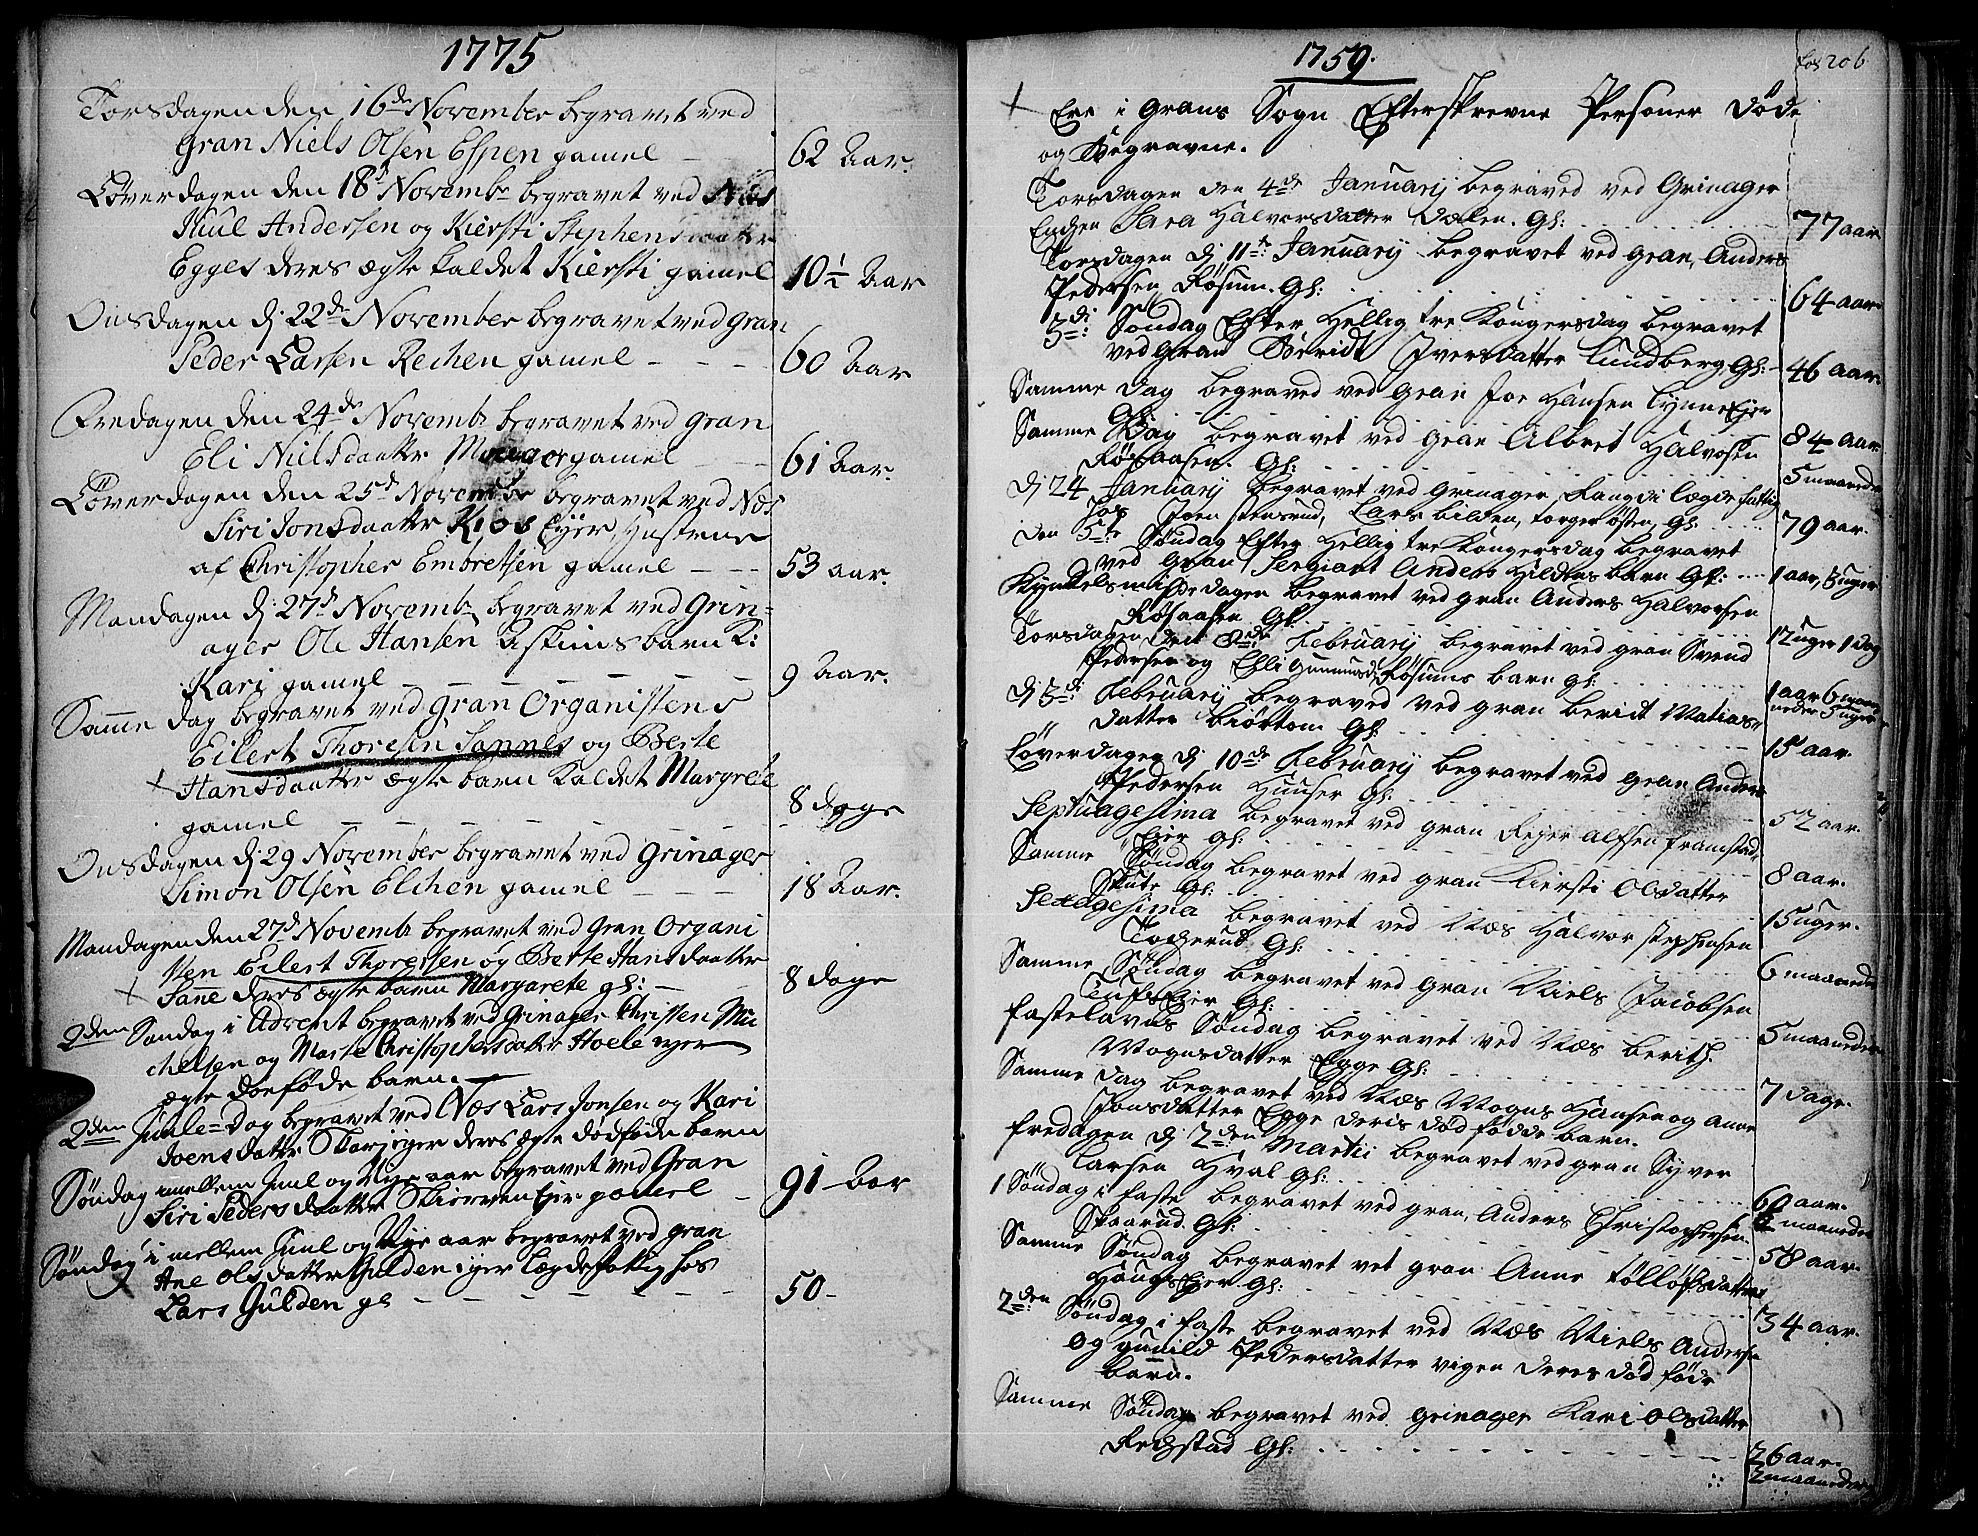 1775
Torsdagen den 16de November begravet ved
Gran Niels Olsen Espen gamel — 62 Aar.
Løverdagen den 18d Novembr begravet ved Næs
Juul Andersen og Kiersti Stephensdaatter
Egges deres ægte kaldet Kiersti gamel 10½ Aar
Onsdagen dj 22de November begravet ved Gran
Peder Larsen Rechen gamel — — — 60 Aar
Fredagen den 24de Novembr begravet ved Gran
Eli Nielsdaatter gamel — 61 Aar
Løverdagen den 25d November begravet ved Næs
Siri Jonsdaatter Kios Eyer Hustrue
af Christopher Embretsen gamel — — 53 aar.
Mandagen dj 27d Novembr begravet ved Grin=
ager Ole Hansen Askims barn K:
Kari gamel — — — — — 9 Aar.
Samme dag begravet ved Gran Organistens
Eilert Thoresen Sannes og Berte
+ Hansdaatter ægte barn kaldet Margrete
gamel — — — — — — 8 dage
Onsdagen dj 29 November begravet ved Grinager
Simon Olsen Elchen gamel — — — 18 Aar.
Mandagen den 27d Novembr begravet ved Gran Organi
sten Eilert Thoresen og Berte Hansdaatter
+ Sanne deres ægte barn Margarete gl: — 8 dage
2den Søndag i Advent begravet ved Grinager Christen Mi
chelsen og Marte Christophersdaatter Hoele eyer
ægte dødføde barn.
2den Juule=Dag begravet ved Næs Lars Jonsen og Kari
Joensdatter deres ægte dødføde barn
Søndag imellem Juul og Nye aar begravet ved Gran
Siri Pedersdaatter Skierven Eier gamel — 91 Aar
Søndag i mellem Juul og Nye aar begravet ved gran
+ Ane Olsdatter Gulden eyer Lægdefattig hos
Lars Gulden gl — — — — — — 50 —
1759.
fol 206
+ Ere i Grans Sogn Efterskrevne Personer Døde
og Begravne.
Torsdagen den 4de Januarij begraved ved Grinager
Enchen Sara Halvorsdatter Dælen. Gl: 77 aar
Torsdagen dj 11te Januarij begravet ved Gran, Anders
Pedersen Røsum. Gl: 64 aar
3di: Søndag Efter Hellig tre Kongersdag begravet
ved Gran Beridt Iversdatter Lundberg Gl: 46 aar.
Samme Dag begraved ved Gran Joe Hansen Lynne Ejer
Gl: 84 aar.
Samme Dag begravet ved Gran Albret Halvorsen
Røsaasen. Gl: 5 maaneder
dj 24 Januarij begravet ved Grinager, Rangdi lægdefattig
hos Joen Lars Bilden, Torger Østen, Gl: 79 aar.
den 5te Søndag Efter Hellig tre Kongersdag begravet
ved Gran Sergiant Anders Hilders barn Gl: 1 aar, 8 uger
Kyndelsmissedagen begravet ved Gran Anders Halvorsen
Røsaasen Gl: 12 uger 1 dag
Torsdagen den 8de Februarij begravet ved Gran Svend
Pedersen og Elli Gunmunsd Røsums barn gl: 1 aar 6 maa
neder 3 uger
dj 3di Februarij begraved ved Gran Beridt Matias=
datter Biørtom Gl: 15 aar
Løverdagen dj 10de Februarij begravet ved Gran Anders
Pedersen Hunser Gl: 52 aar.
Septuagesima begravet ved Gran Reyer Alfsen Framstad
Ejer gl: 8 aar.
Samme Søndag begravet ved Gran Kiersti Olsdatter
Skute Gl: 15 uger.
Sexagesima begravet ved Næs Halvor Stephensen
Tocherud Gl: 6 maaneder
Samme Søndag begravet ved Gran Niels Jacobsen
Tufs Ejer Gl: 5 maaneder
Fastelavns Søndag begravet ved Næs Berith
Mognsdatter Egge Gl: 7 dage.
Samme dag begravet ved Næs Mogns Hansen og Anne
Jonsdatter Egge deris død fødde barn.
Fredagen dj 2den Martii begravet ved Gran Syver
Larsen Hval Gl: 60 aar.
maaneder
1 Søndag i Faste begravet ved Gran, Anders Christophersen
Skaarud. Gl: 58 aar.
Samme Søndag begravet vet Gran Anne Tølløfsdatter
Haugs Ejer Gl: 34 aar.
2den Søndag i Faste begravet ved Næs Niels Andersen
og Gunild Pedersdatter Vigen deres død føde
barn.
Samme Søndag begravet ved Grinager Kari Olsdatter
Rechstad Gl: 26 aar.
2 maaneder